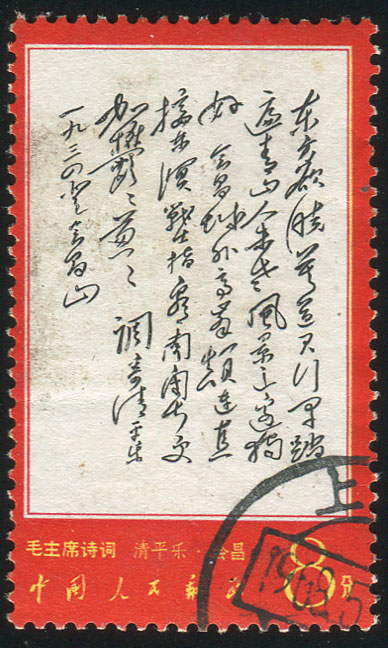 东方欲晓莫道君行早踏
遍青山人未老风景这边独
好会昌城外高峰颠连直
接东溟戰士指看南粤更
加鬱〻葱〻
调寄清平乐
一九三四年登会昌山
毛主席诗词 清平乐·会昌
中国人民邮政
8分
上